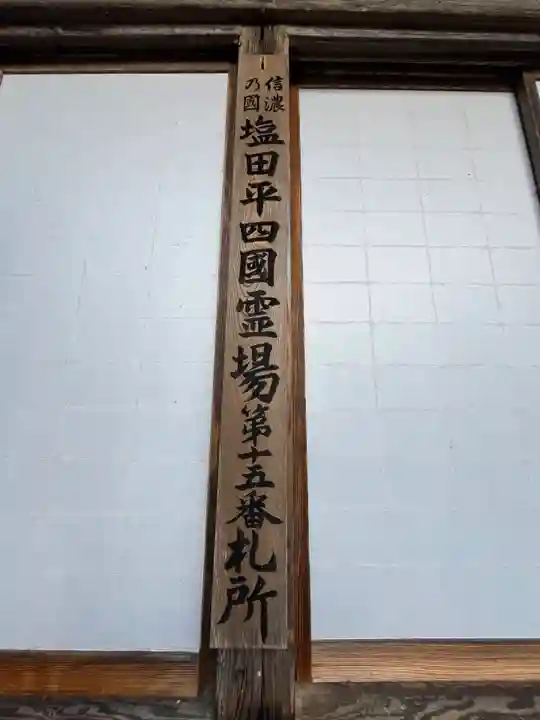 信濃
乃國
塩田平四國霊場第十五番札所